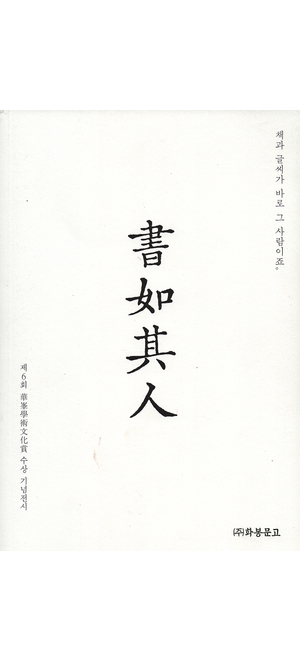 책과 글씨가 바로 그 사람이죠。
書如其人
제6회 華峯學術文化賞 수상 기념전시
(주)화봉문고